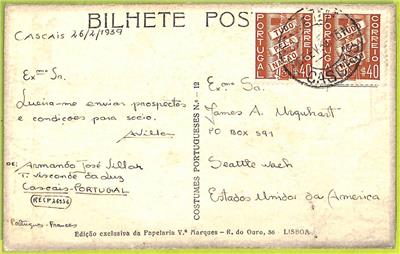 BILHETE POS
Cascais 26/2/1939
Exmo Sr.
Queira-me enviar prospectos
e condições para socio.
AVillar
DE: Armando José Villar
T. Visconde da Luz
Cascais-PORTUGAL
Portugues-Frances
COSTUMES PORTUGUESES N.º 12
PORTUGAL
CORREIO
TUDO PELA NAÇÃO
$40
PORTUGAL
CORREIO
$40
CASCAIS
Exmo Sr.
James A. Urquhart
PO BOX 591
Seattle Wach
Estados Unidos da America
Edição exclusiva da Papelaria V.ª Marques - R. do Ouro, 36 - LISBOA